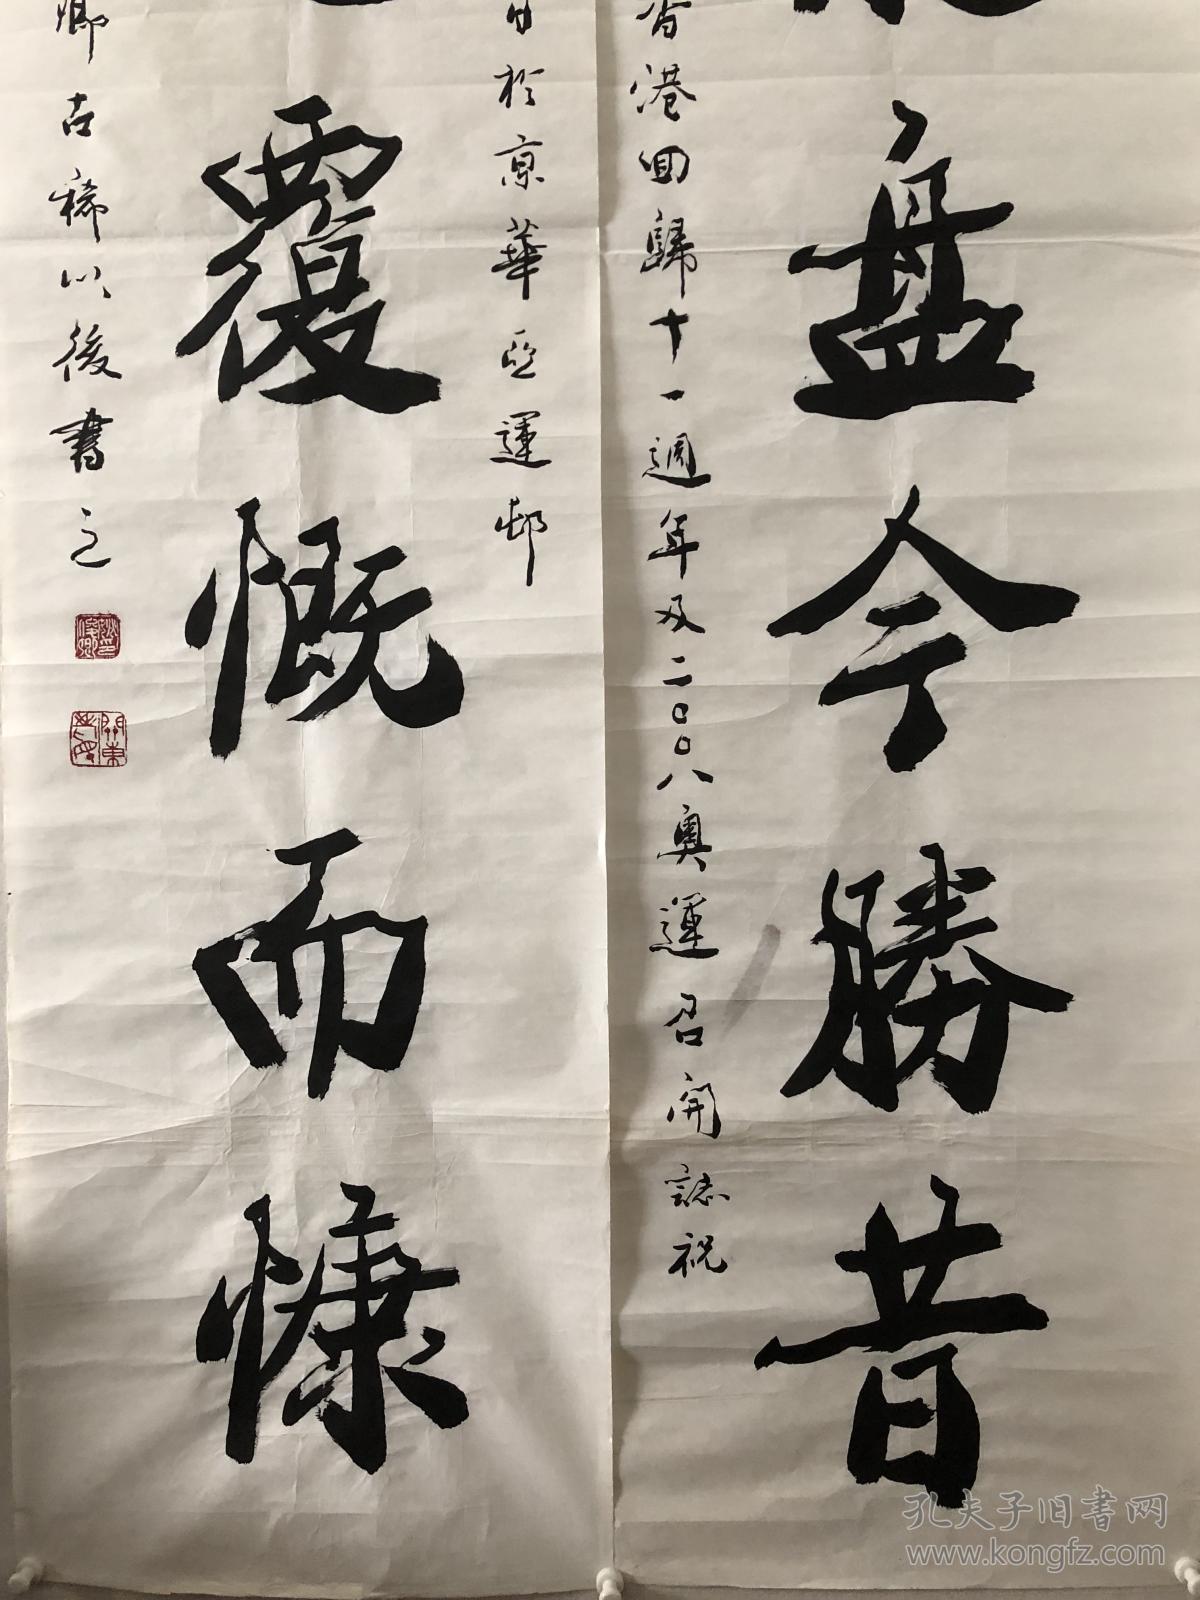 盘今勝昔
香港回歸十一週年及二〇〇八奧運召開誌祝
日於京華亞運邨
覆慨而慷
卿古稀以後書之
孔夫子旧书网
www.kongfz.com